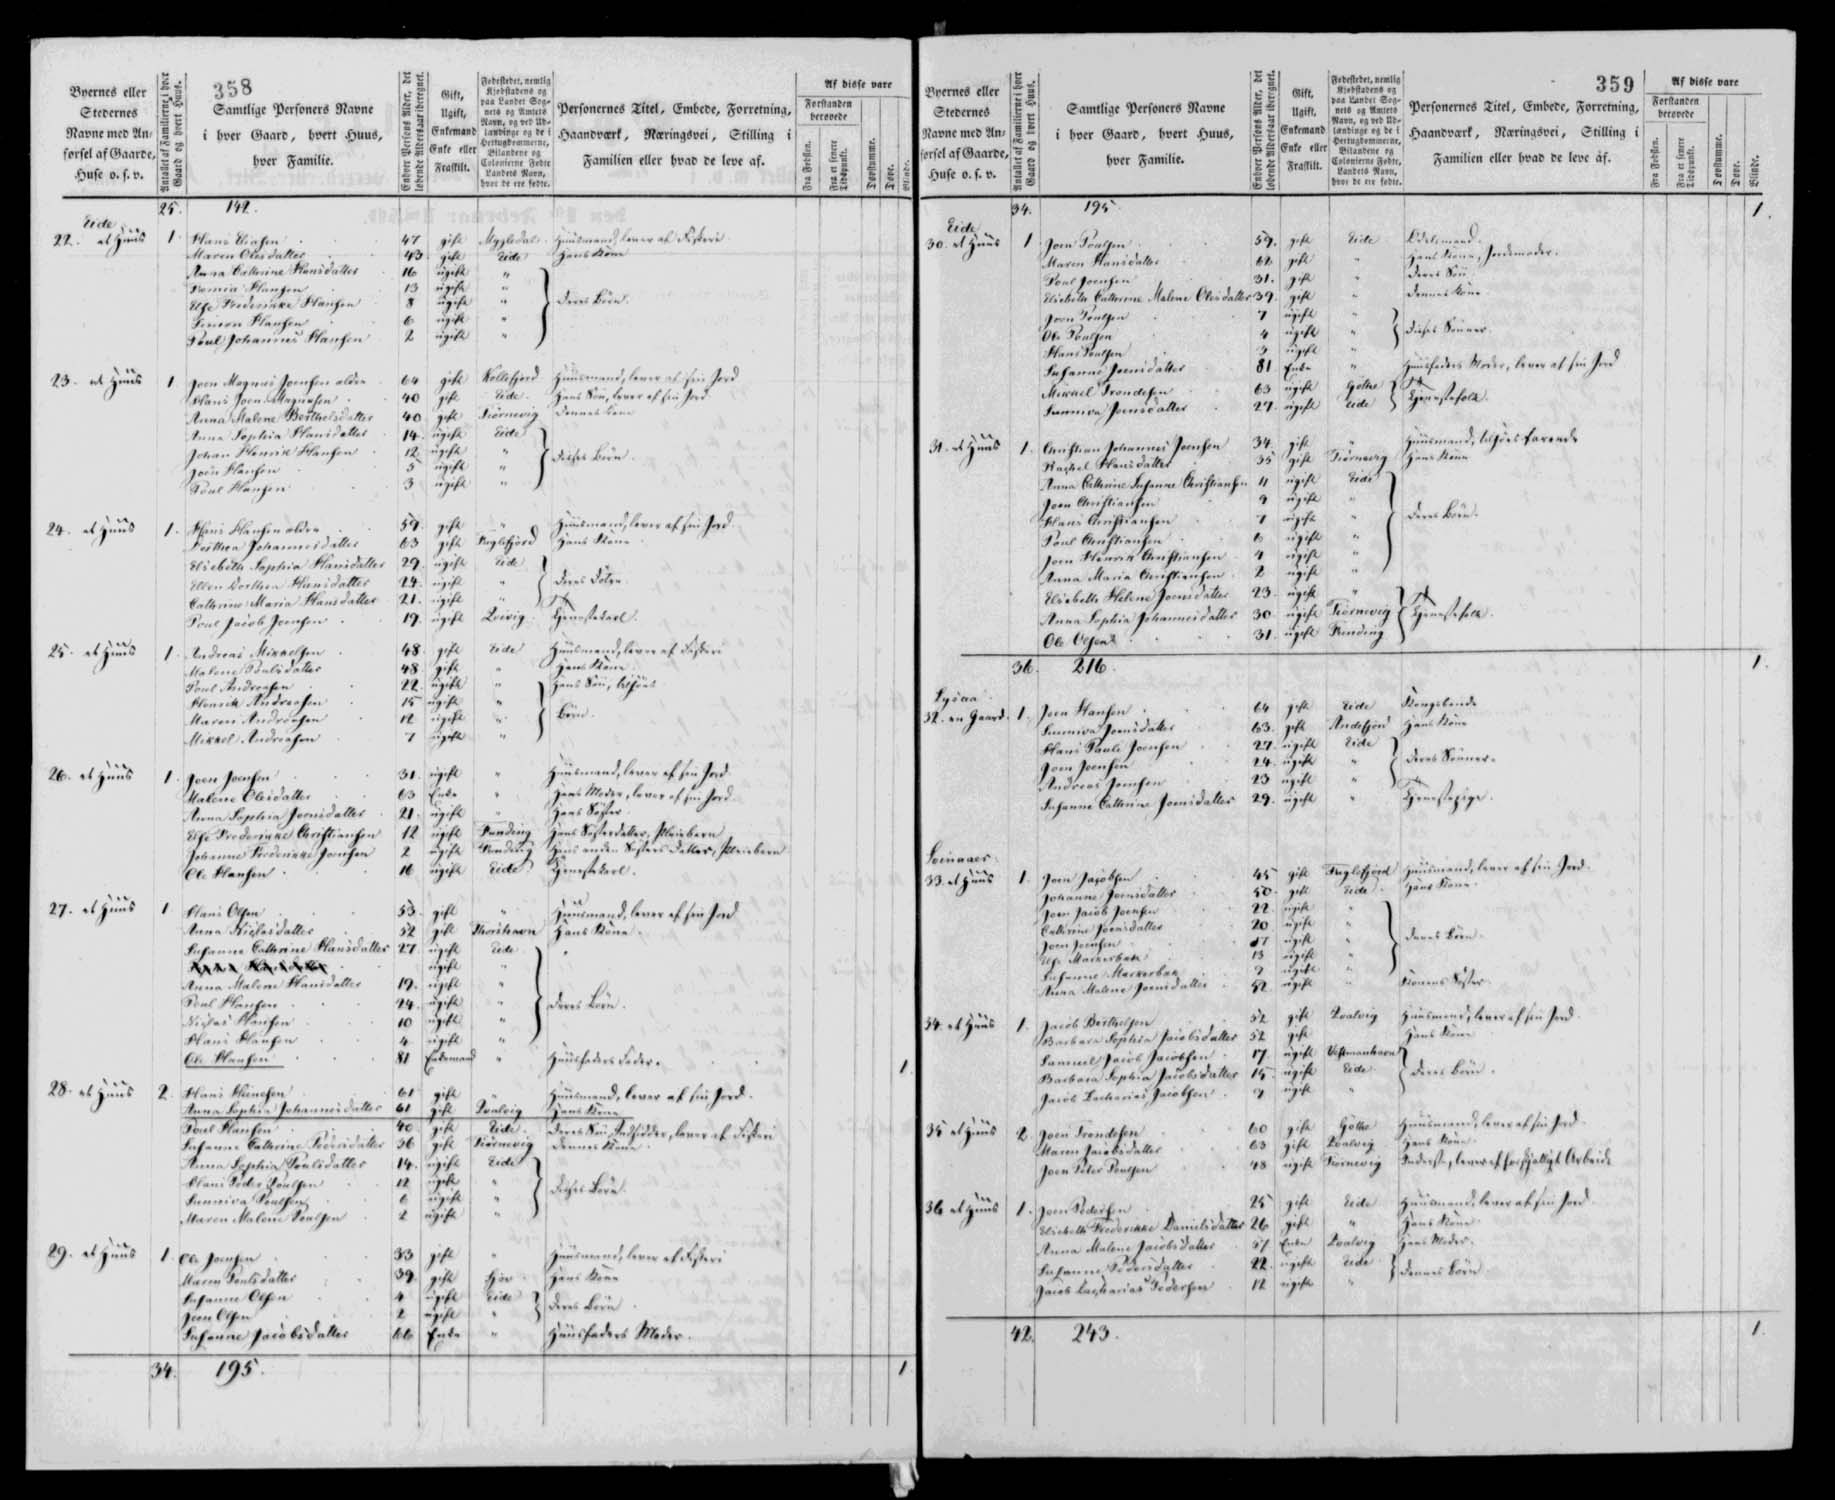 358
Byernes eller Stedernes Navne med Anførsel af Gaarde, Huse o. s. v.
Antallet af Familierne i hver Gaard og hvert Huus.
Samtlige Personers Navne i hver Gaard, hvert Huus, hver Familie.
Enhver Persons Alder, det løbende Aldersaar iberegnet.
Gift, Ugift, Enkemand Enke eller Fraskilt.
Fødestedet, nemlig Kjøbstadens og paa Landet Sognets og Amtets Navn, og ved Udlændinge og de i Hertugdømmerne, Bilandene og Colonierne Fødte Landets Navn, hvor de ere fødte.
Personernes Titel, Embede, Forretning, Haandværk, Næringsvei, Stilling i Familien eller hvad de leve af.
Af disse vare
Forstanden berøvede
Fra Fødslen.
Fra et senere Tidspunkt.
Døvstumme.
Døve.
Blinde.
25. 142.
Eide
22. et Huus 1. Hans Eliasen 47 gift Mygledal Huusmand, lever af Fiskeri
Maren Olesdatter 43 gift Eide Hans Kone
Anna Cathrine Hansdatter 16 ugift "
Hansen 13 ugift "
Else Frederikke Hansen 8 ugift " Deres Børn.
Simon Hansen 6 ugift "
Poul Johannes Hansen 2 ugift "
23. et Huus 1. Joen Magnus Joensen ældre 64 gift Kollefjord Huusmand, lever af sin Jord
Hans Joen Magnusen 40 gift Eide Hans Søn, lever af sin Jord
Anna Malene Berthelsdatter 40 gift Tiørnevig Dennes Kone
Anna Sophia Hansdatter 14 ugift Eide
Johan Henrik Hansen 12 ugift " Disses Børn.
Joen Hansen 5 ugift "
Poul Hansen 3 ugift "
24. et Huus 1. Hans Hansen ældre 59 gift " Huusmand, lever af sin Jord
Dorthea Johannesdatter 63 gift Fuglefjord Hans Kone
Elsebeth Sophia Hansdatter 29 ugift Eide
Ellen Dorthea Hansdatter 24 ugift " Deres Døtre
Cathrine Maria Hansdatter 21 ugift "
Poul Jacob Joensen 19 ugift Leivig Tjenestekarl.
25. et Huus 1. Andreas Mikkelsen 48 gift Eide Huusmand, lever af Fiskeri
Malene Poulsdatter 48 gift " Hans Kone
Poul Andreasen 22 ugift " Hans Søn, tilsøes
Henrik Andreasen 15 ugift "
Maren Andreasen 12 ugift " Børn.
Mikkel Andreasen 7 ugift "
26. et Huus 1. Joen Joensen 31 ugift " Huusmand, lever af sin Jord
Malene Olesdatter 63 Enke " Hans Moder, lever af sin Jord
Anna Sophia Joensdatter 21 ugift " Hans Søster
Else Frederikke Christiansen 12 ugift Funding Hans Søsterdatter, Pleiebarn
Johanne Frederikke Joensen 2 ugift Funding Hans anden Søsters Datter, Pleiebarn
Ole Hansen 16 ugift Eide Tjenestekarl.
27. et Huus 1 Hans Olsen 53 gift " Huusmand, lever af sin Jord
Anna Niclasdatter 52 gift Thorshavn Hans Kone
Susanne Cathrine Hansdatter 27 ugift Eide "
ugift "
Anna Malene Hansdatter 19 ugift "
Poul Hansen 24 ugift " Deres Børn.
Niclas Hansen 10 ugift "
Hans Hansen 4 ugift "
Ole Hansen 81 Enkemand " Huusfaders Fader. 1
28. et Huus 2. Hans Hansen 61 gift " Huusmand, lever af sin Jord
Anna Sophia Johannesdatter 61 gift Qvalvig Hans Kone
Poul Hansen 40 gift Eide Deres Søn, Indsidder, lever af Fiskeri
Susanne Cathrine Pedersdatter 36 gift Tiørnevig Dennes Kone
Anna Sophia Poulsdatter 14 ugift Eide
Hans Peder Poulsen 12 ugift " Disses Børn.
Sunniva Poulsen 6 ugift "
Maren Malene Poulsen 2 ugift "
29. et Huus 1. Ole Joensen 33 gift " Huusmand, lever af Fiskeri
Maren Poulsdatter 39 gift Gjov Hans Kone
Susanne Olsen 4 ugift Eide Deres Børn
Joen Olsen 2 ugift "
Susanne Jacobsdatter 66 Enke " Huusfaders Moder.
34. 195. 1
359
Byernes eller Stedernes Navne med Anførsel af Gaarde, Huse o. s. v.
Antallet af Familierne i hver Gaard og hvert Huus.
Samtlige Personers Navne i hver Gaard, hvert Huus, hver Familie.
Enhver Persons Alder, det løbende Aldersaar iberegnet.
Gift, Ugift, Enkemand Enke eller Fraskilt.
Fødestedet, nemlig Kjøbstadens og paa Landet Sognets og Amtets Navn, og ved Udlændinge og de i Hertugdømmerne, Bilandene og Colonierne Fødte, Landets Navn, hvor de ere fødte.
Personernes Titel, Embede, Forretning, Haandværk, Næringsvei, Stilling i Familien eller hvad de leve af.
Af disse vare
Forstanden berøvede
Fra Fødslen.
Fra et senere Tidspunkt.
Døvstumme.
Døve.
Blinde.
34. 195. 1.
Eide
30. et Huus 1 Joen Poulsen 59. gift Eide Odelsmand.
Maren Hansdatter 62 gift " Hans Kone, Jordemoder.
Poul Joensen 31. gift " Deres Søn
Elsebeth Cathrine Malene Olesdatter 39. gift " Dennes Kone
Joen Poulsen 7 ugift "
Ole Poulsen 4 ugift " Disses Sønner.
Hans Poulsen 3 ugift "
Susanne Joensdatter 81 Enke " Huusfaders Moder, lever af sin Jord
Mikkel Trondesen 63 ugift Gøthe Tjenestefolk.
Sunniva Joensdatter 27. ugift Eide
31. et Huus 1. Christian Johannes Joensen 34. gift " Huusmand, tilsøes farende
Rachel Hansdatter 35 gift Tiørnevig Hans Kone
Anna Cathrine Susanne Christiansen 11 ugift Eide
Joen Christiansen 9 ugift "
Hans Christiansen 7 ugift " Deres Børn.
Poul Christiansen 6 ugift "
Joen Henrik Christiansen 4 ugift "
Anna Maria Christiansen 2 ugift "
Elsebeth Helene Joensdatter 23. ugift "
Anna Sophia Johannesdatter 30 ugift Tiørnevig Tjenestefolk.
Ole Olsen 31. ugift Funding
36. 216. 1.
32. en Gaard. 1. Joen Hansen 64 gift Eide Kongsbonde
Sunniva Joensdatter 63. gift Andefjord Hans Kone
Hans Pauli Joensen 27. ugift Eide
Joen Joensen 24. ugift " Deres Sønner.
Andreas Joensen 23 ugift "
Susanne Cathrine Joensdatter 29. ugift " Tjenestepige.
33. et Huus 1. Joen Jacobsen 45 gift Fuglefjord Huusmand, lever af sin Jord.
Johanne Joensdatter 50. gift Eide Hans Kone
Joen Jacob Joensen 22 ugift "
Cathrine Joensdatter 20 ugift "
Joen Joensen 17 ugift " Deres Børn.
13 ugift "
Susanne 9 ugift "
Anna Malene Joensdatter 52 ugift " Konens Søster.
34. et Huus 1. Jacob Berthelsen 52 gift Qvalvig Huusmand, lever af sin Jord.
Barbara Sophia Jacobsdatter 52 gift Hans Kone
Samuel Jacob Jacobsen 17 ugift Vestmanhavn
Barbara Sophia Jacobsdatter 15 ugift Eide Deres Børn.
Jacob Zacharias Jacobsen 9 ugift "
35 et Huus 2. Joen Trondesen 60 gift Gøthe Huusmand, lever af sin Jord.
Maren Jacobsdatter 63 gift Qvalvig Hans Kone
Joen Peter Poulsen 48 ugift Tiørnevig Inderste, lever af forskjelligt Arbeide
36 et Huus 1. Joen Pedersen 25 gift Eide Huusmand, lever af sin Jord.
Elsebeth Frederikke Danielsdatter 26 gift " Hans Kone
Anna Malene Jacobsdatter 57 Enke Qvalvig Hans Moder.
Susanne Pedersdatter 22. ugift Eide Dennes Børn.
Jacob Zacharias Pedersen 12 ugift "
42. 243. 1.